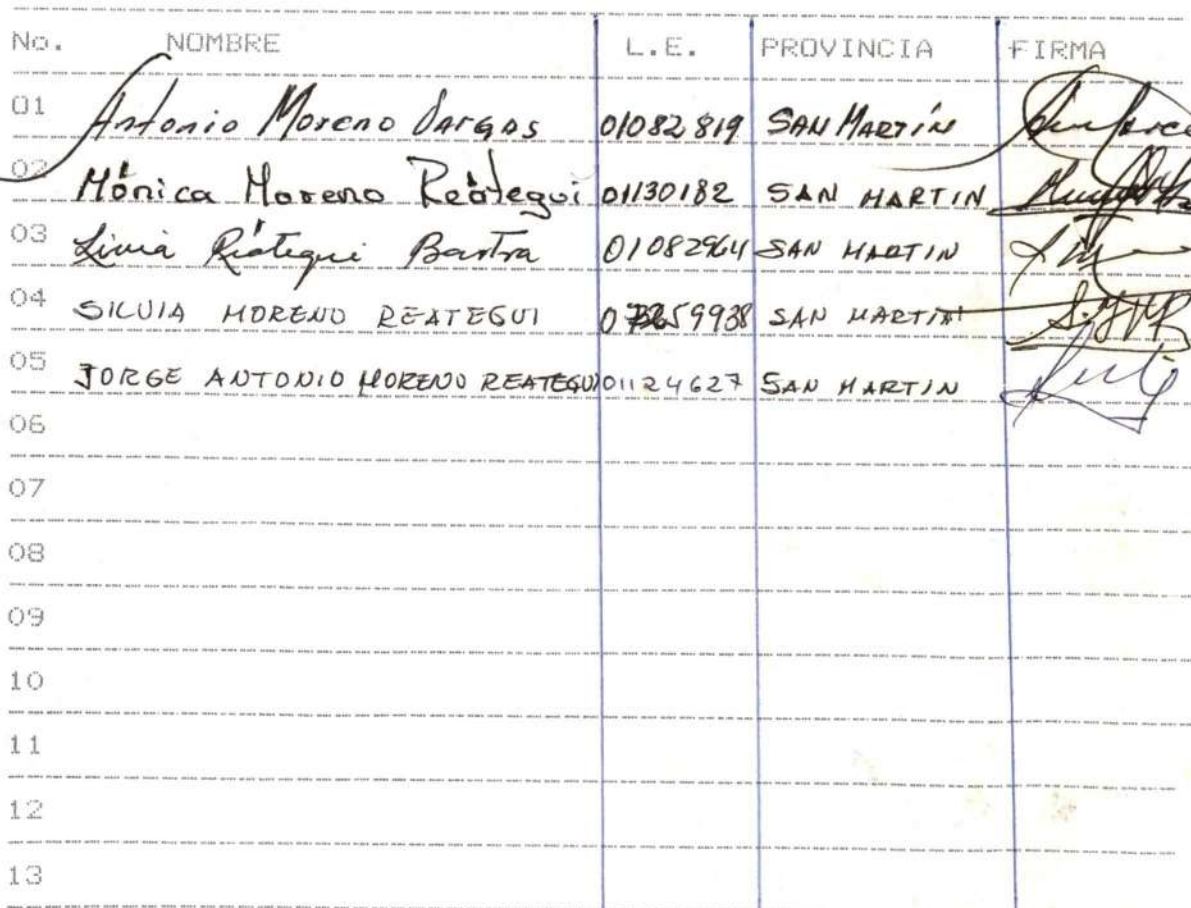 No. NOMBRE L.E. PROVINCIA FIRMA
01 Antonio Moreno Vargas 01082819 SAN MARTÍN
02 Mónica Moreno Reátegui 01130182 SAN MARTIN
03 Livia Reátegui Bartra 01082964 SAN MARTIN
04 SILVIA MORENO REATEGUI SAN MARTIN
05 JORGE ANTONIO MORENO REATEGUI 01124627 SAN MARTIN
06
07
08
09
10
11
12
13